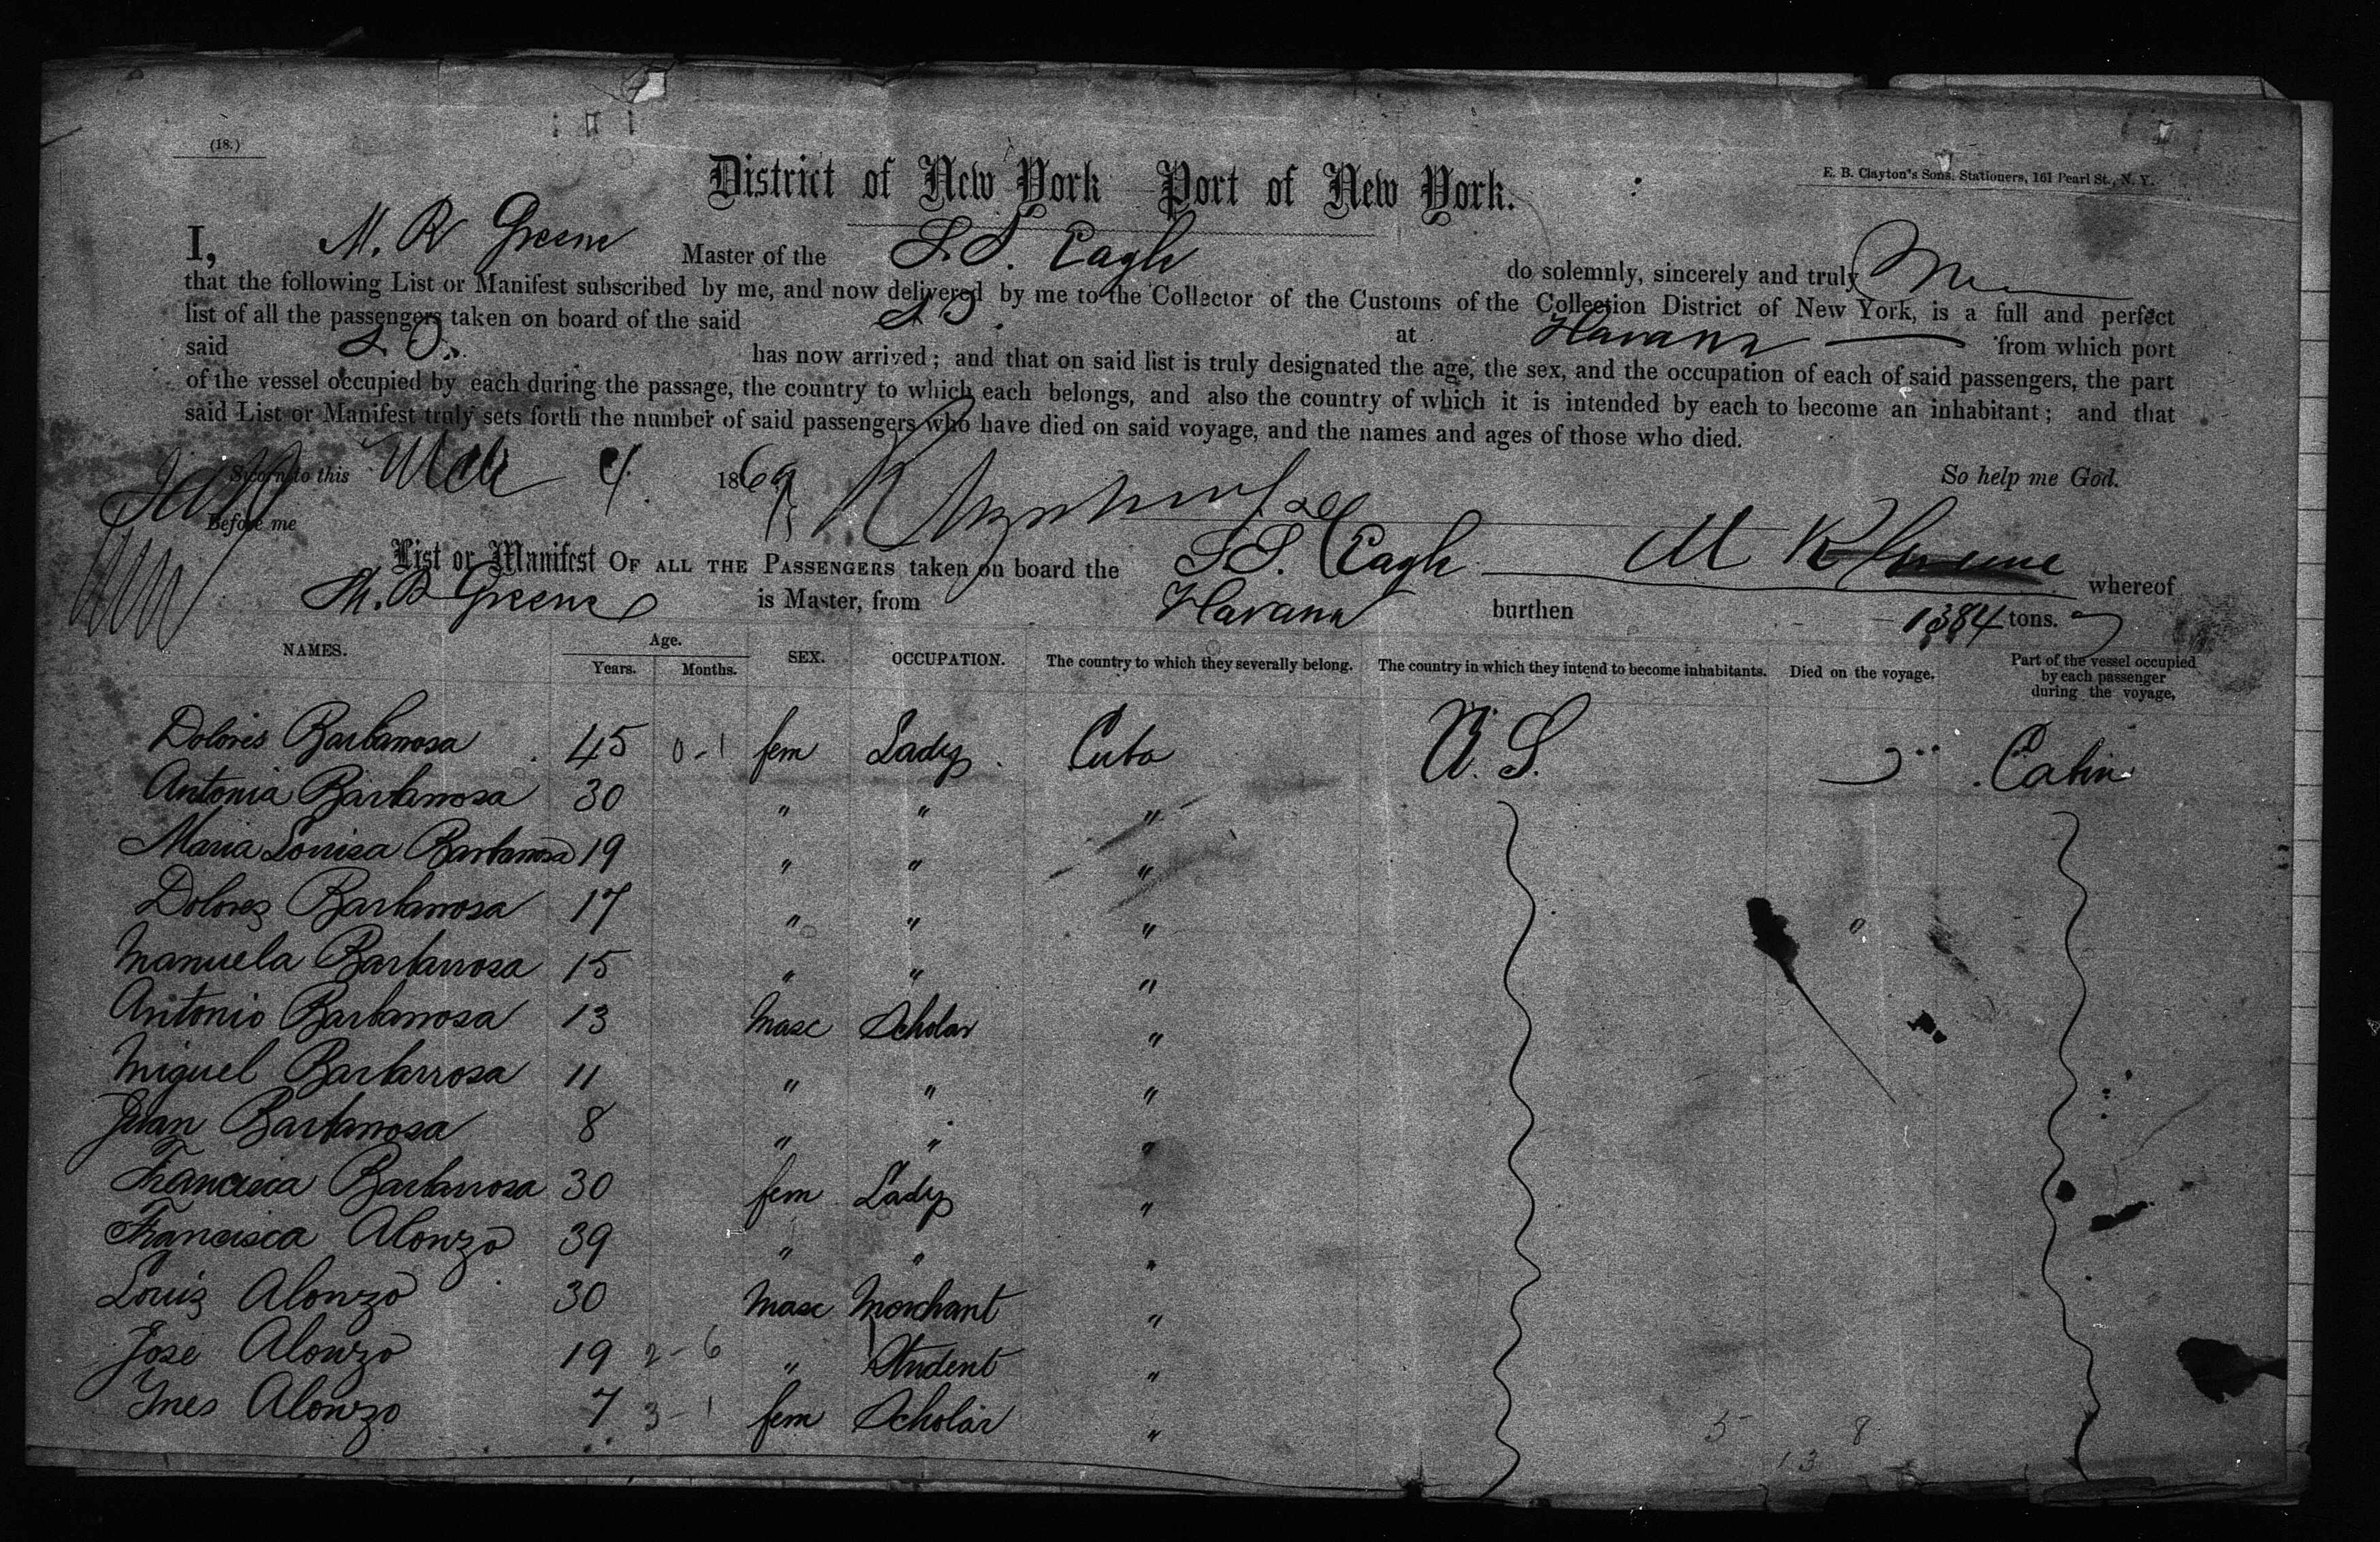 (18.)
District of New York Port of New York.
E. B. Clayton's Sons, Stationers, 161 Pearl St., N. Y.
I, M. R Greene Master of the S S. Eagle do solemnly, sincerely and truly
that the following List or Manifest subscribed by me, and now delivered by me to the Collector of the Customs of the Collection District of New York, is a full and perfect
list of all the passengers taken on board of the said S S. at Havana from which port
said S S. has now arrived; and that on said list is truly designated the age, the sex, and the occupation of each of said passengers, the part
of the vessel occupied by each during the passage, the country to which each belongs, and also the country of which it is intended by each to become an inhabitant; and that
said List or Manifest truly sets forth the number of said passengers who have died on said voyage, and the names and ages of those who died.
Sworn to this Mch 4. 1869 So help me God.
Before me
List or Manifest OF ALL THE PASSENGERS taken on board the S S. Eagle M R Greene whereof
M. R Greene is Master, from Havana burthen 1384 tons.
NAMES. Age. Years. Months. SEX. OCCUPATION. The country to which they severally belong. The country in which they intend to become inhabitants. Died on the voyage. Part of the vessel occupied by each passenger during the voyage,
Dolores Barbarrosa 45 0-1 fem Lady Cuba U. S. Cabin
Antonia Barbarrosa 30 " " "
Maria Louisa Barbarrosa 19 " " "
Dolores Barbarrosa 17 " " " "
Manuela Barbarrosa 15 " " "
Antonio Barbarrosa 13 Masc Scholar "
Miguel Barbarrosa 11 " " "
Juan Barbarrosa 8 " " "
Francisca Barbarrosa 30 fem Lady "
Francisca Alonzo 39 " " "
Louis Alonzo 30 Masc Merchant "
Jose Alonzo 19 2-6 " Student "
Ynes Alonzo 7 3-1 fem Scholar "
5 8
13